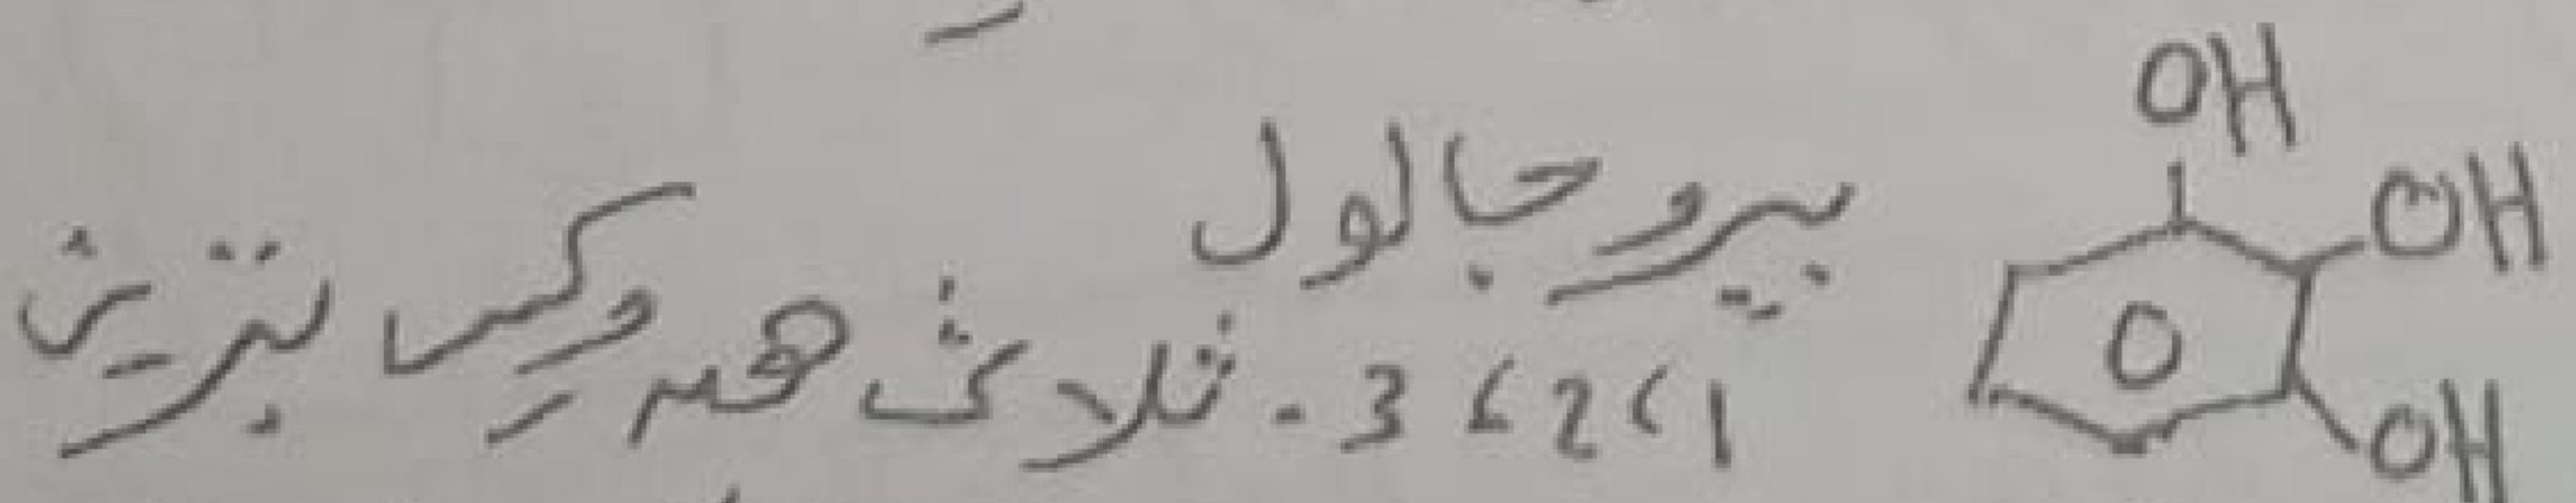 OH
OH
بيروجالول
1، 2، 3 - ثلاث هيدروكسى بنزين
OH